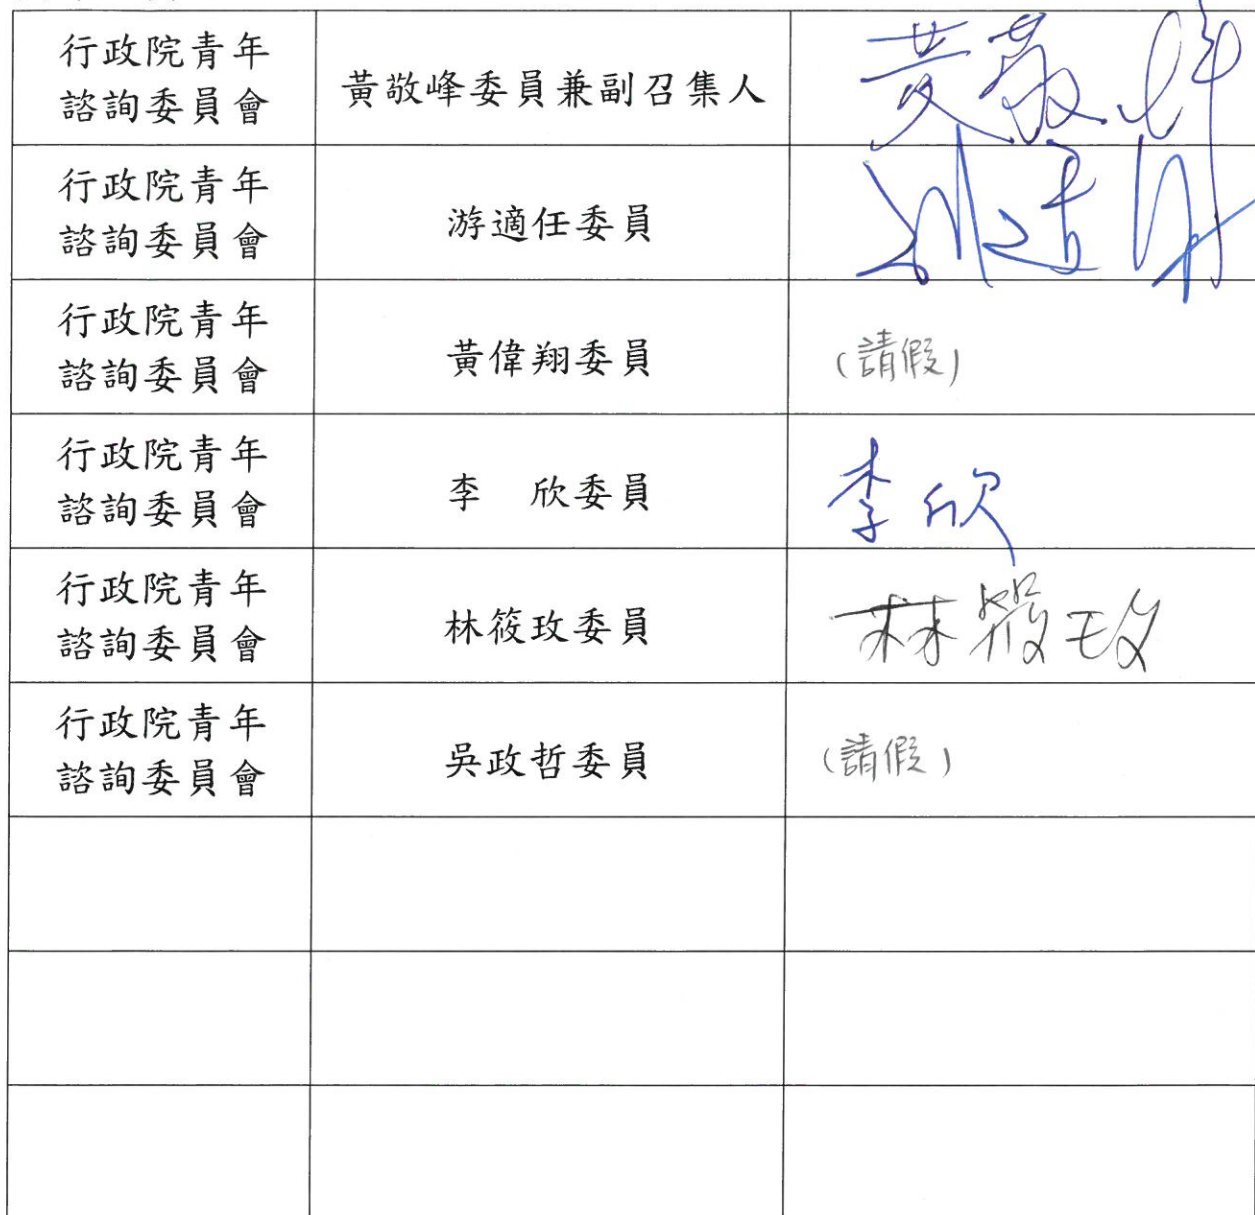 行政院青年
諮詢委員會
黃敬峰委員兼副召集人
黃敬峰
行政院青年
諮詢委員會
游適任委員
游適任
行政院青年
諮詢委員會
黃偉翔委員
(請假)
行政院青年
諮詢委員會
李　欣委員
李欣
行政院青年
諮詢委員會
林筱玫委員
林筱玫
行政院青年
諮詢委員會
吳政哲委員
(請假)